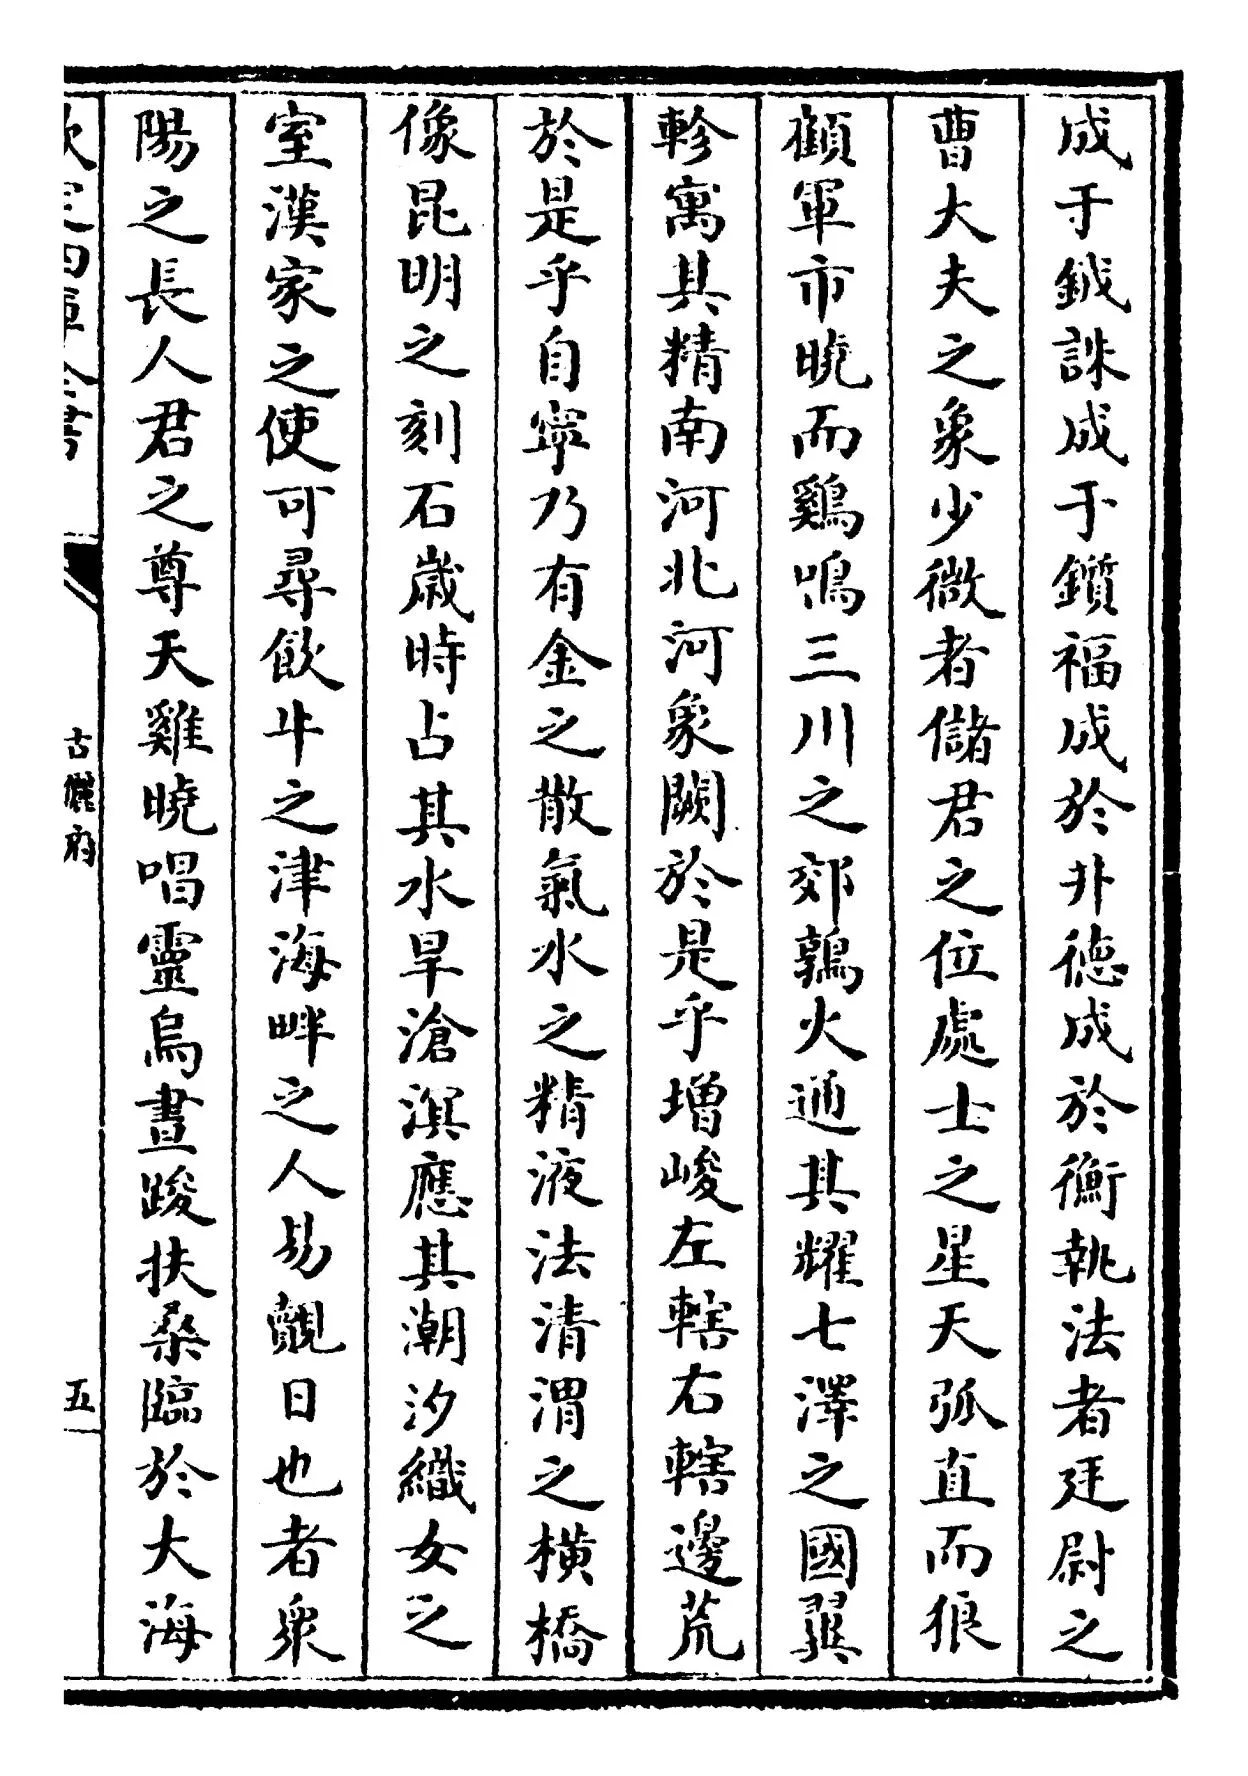 成于鉞誅成于鑕福成於井徳成於衡執法者廷尉之
曹大夫之象少微者儲君之位處士之星天弧直而狼
顧軍市曉而鷄鳴三川之郊鶉火通其耀七澤之國翼
軫寓其精南河北河象闕於是乎增峻左轄右轄邊荒
於是乎自寧乃有金之散氣水之精液法清渭之橫橋
像昆明之刻石歲時占其水旱滄溟應其潮汐織女之
室漢家之使可尋飲牛之津海畔之人易覿日也者衆
陽之長人君之尊天雞曉唱靈烏晝踆扶桑臨於大海
欽定四庫全書
古儷府
五